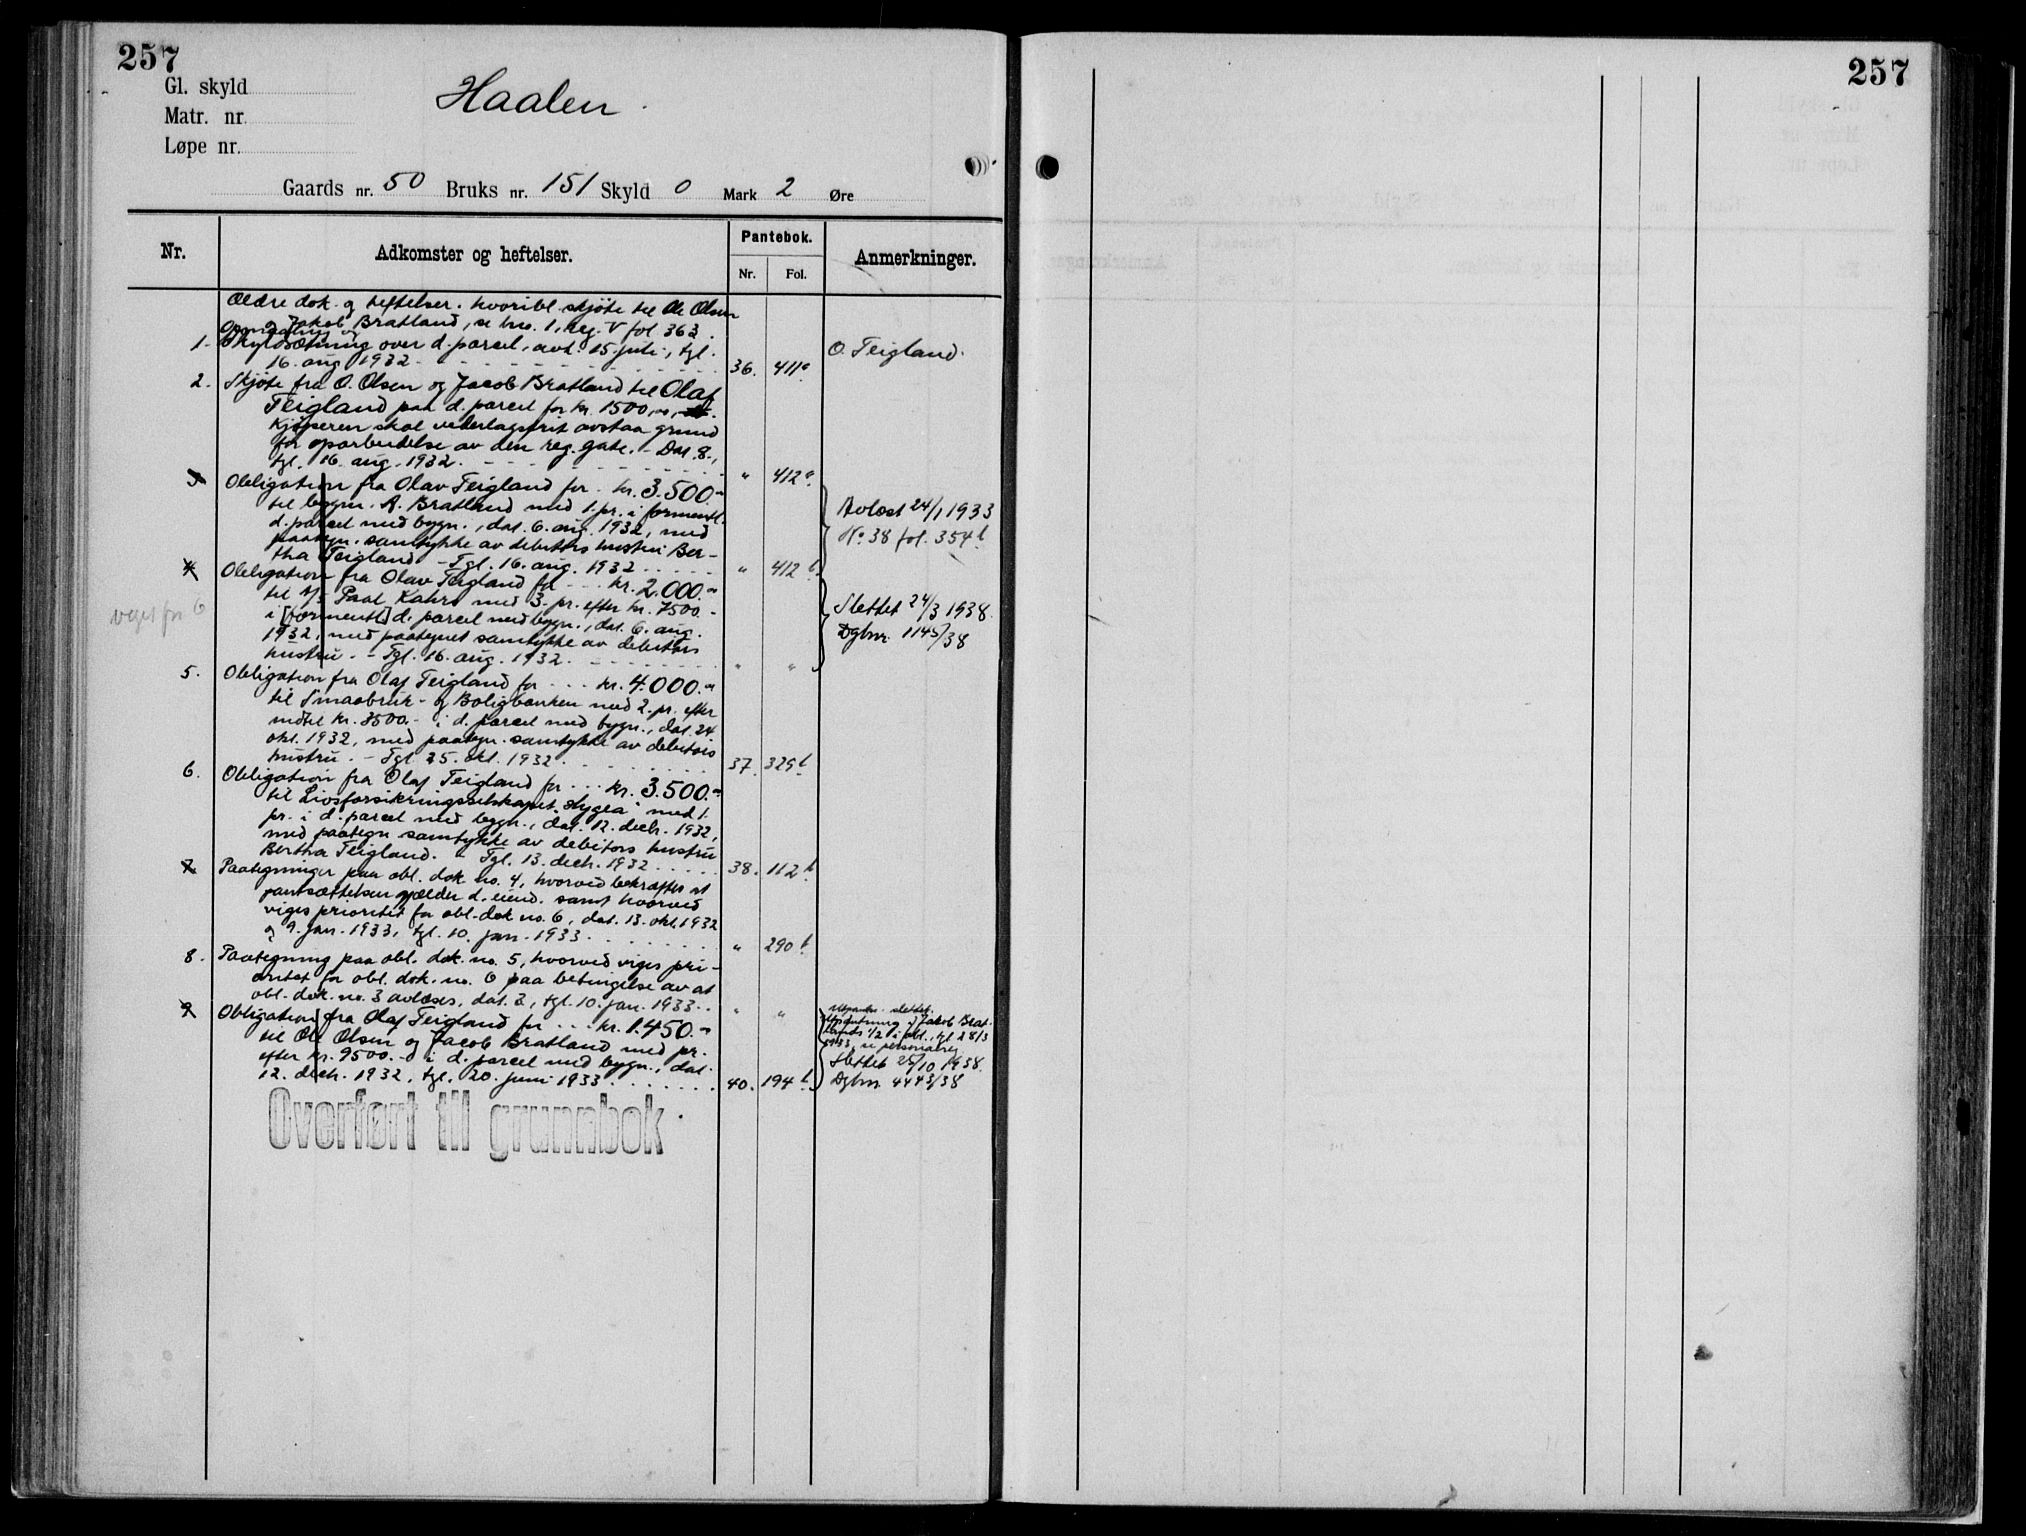 257
Gl. skyld
Matr. nr.
Løpe nr.
Haalen
Gaards nr. 50 Bruks nr. 151 Skyld 0 Mark 2 Øre
Nr. Adkomster og heftelser. Pantebok. Anmerkninger.
Nr. Fol.
Ældre dok. og heftelser. hvoribl. skjöte til Ole Olsen
og Jakob Bratland, se bno. 1, reg. V fol 363.
Opmaalings og
1. Skyldsætning over d. parcel, avh. 15. juli, tgl.
16. aug 1932 36. 411a
O. Teigland.
2. Skjöte fra O. Olsen og Jacob Bratland til Olaf
Teigland paa d. parcel for kr. 1500,00,
Kjöperen skal vederlagsfrit avstaa grund
for oparbeidelse av den reg. gate. - Dat. 8.,
tgl. 16. aug. 1932. " 412a
3 Obligation fra Olav Teigland for kr. 3.500.-
til bygm. A. Bratland med 1. pr. i forment.
d. parcel med bygn., dat. 6. aug. 1932, med
paategn. samtykke av debitors hustru Ber-
tha Teigland - Tgl. 16. aug. 1932 " 412b
Avlæst 24/1 1933
No 38 fol. 354b
4 Obligation fra Olav Teigland for kr. 2.000.-
til A/S Paal Kahrs med 3. pr. efter kr. 7500.-
i [forment] d. parcel med bygn., dat. 6. aug.
1932, med paategnet samtykke av debitors
hustru. - Tgl. 16. aug. 1932. " "
viget for 6
Slettet 24/3 1938.
Dgbnr. 1145/38
5. Obligation fra Olaf Teigland for kr. 4.000.-
til Smaabruk- og Boligbanken med 2. pr. efter
indtil kr. 3500.- i d. parcel med bygn., dat. 24.
okt. 1932, med paategn. samtykke av debitors
hustru. - Tgl. 25. okt. 1932. 37. 329b
6. Obligation fra Olaf Teigland for kr. 3.500.-
til Livsforsikringsselskapet "Hygea" med 1.
pr. i d. parcel med bygn., dat. 12. decb. 1932,
med paategn samtykke av debitors hustru
Bertha Teigland. - Tgl. 13. decb. 1932 38. 112b
7 Paategninger paa obl. dok no. 4, hvorved bekræftes at
pantsættelsen gjælder d. eiend. samt hvorved
viges prioritet for obl. dok no. 6, dat. 13. okt. 1932
og 9. jan. 1933, tgl. 10. jan. 1933. " 290b
8. Paategning paa obl. dok. no. 5, hvorved viges pri-
oritet for obl. dok. no. 6 paa betingelse av at
obl. dok. no. 3 avlæses, dat. 3., tgl. 10. jan. 1933. " "
9 Obligation fra Olaf Teigland for kr. 1.450.-
til Ole Olsen og Jacob Bratland med pr.
efter kr. 9500.- i d. parcel med bygn., dat.
12. decb. 1932, tgl. 20. juni 1933. 40. 194b
slettet.
Utpantning i Jakob Brat-
lands 1/2 i obl., tgl 28/3
1933, se personalreg
Slettet 25/10 1938.
Dgbnr 4443/38
Overført til grunnbok
257